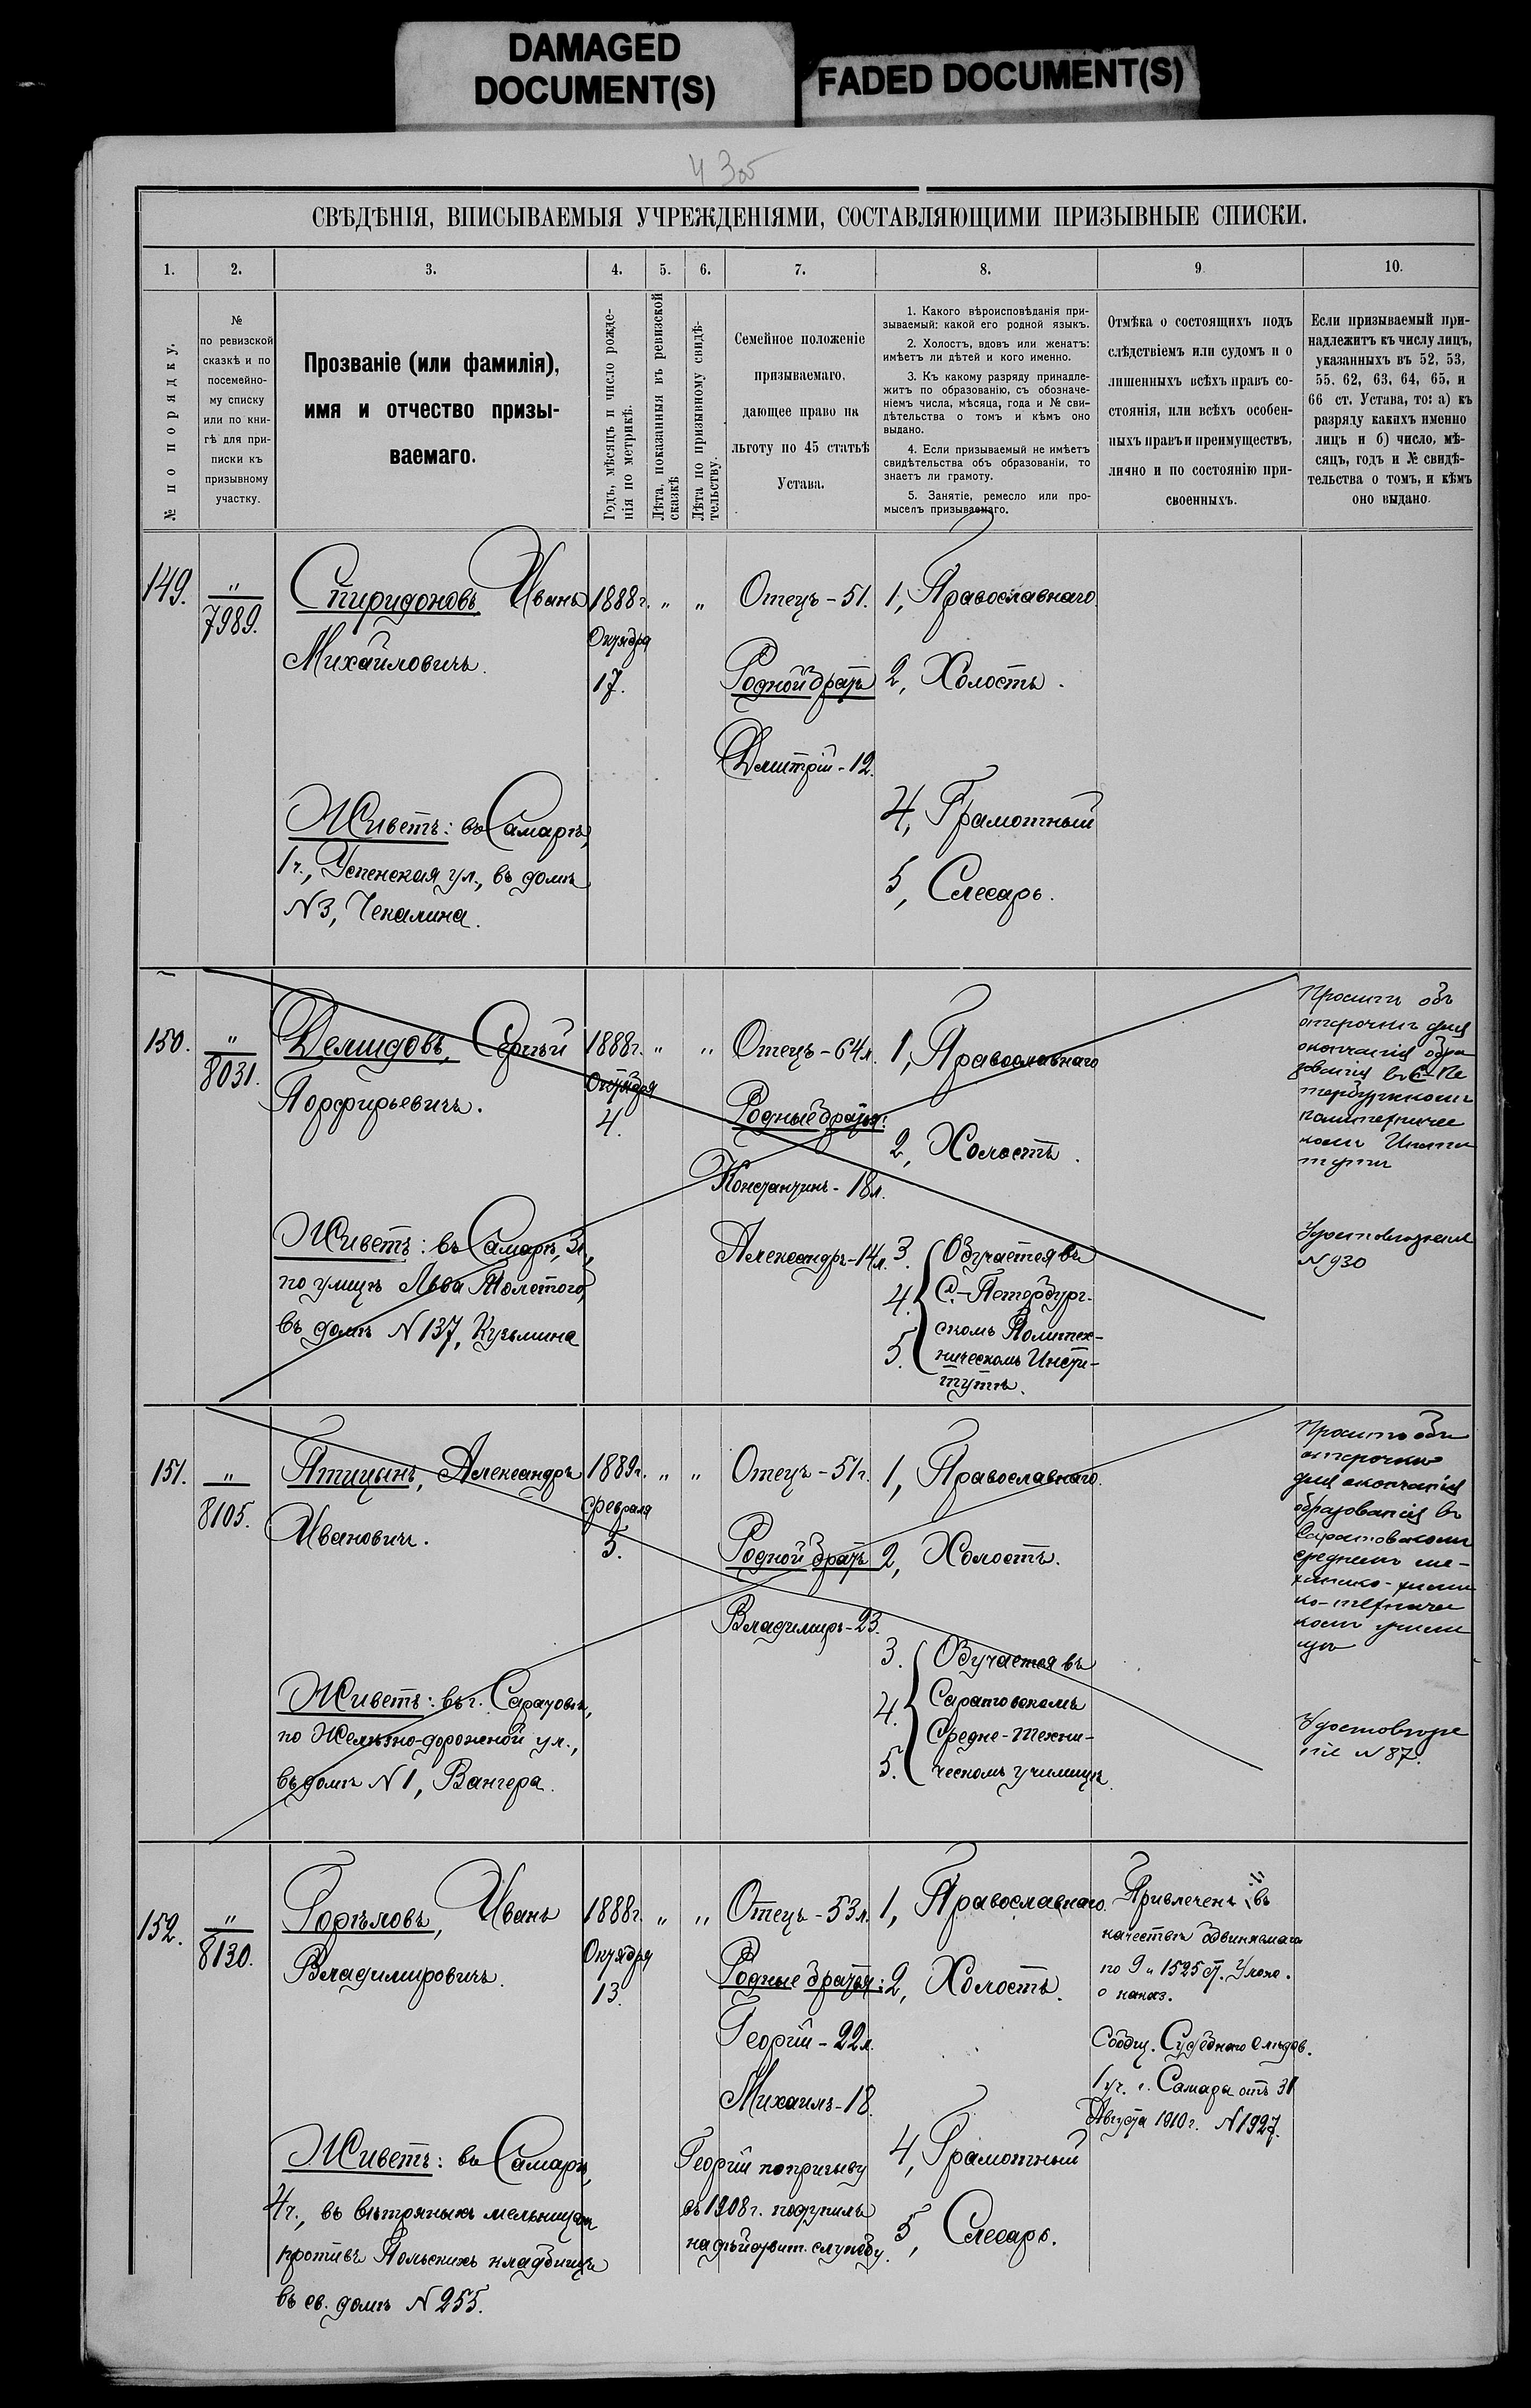 DAMAGED
DOCUMENT(S)
FADED DOCUMENT(S)
СВѢДѢНІЯ, ВПИСЫВАЕМЫЯ УЧРЕЖДЕНІЯМИ, СОСТАВЛЯЮЩИМИ ПРИЗЫВНЫЕ СПИСКИ.
1.
2.
3.
4.
5.
6.
7.
8.
9
10.
№ по порядку.
№
по ревизской
сказкѣ и по
посемейно-
му списку
или по кни-
гѣ для при-
писки къ
призывному
участку.
Прозваніе (или фамилія),
имя и отчество призы-
ваемаго.
Годъ, мѣсяцъ и число рожде-
нія по метрикѣ.
Лѣта, показанныя въ ревизской
сказкѣ
Лѣта по призывному свидѣ-
тельству.
Семейное положеніе
призываемаго,
дающее право на
льготу по 45 статьѣ
Устава.
1. Какого вѣроисповѣданія при-
зываемый: какой его родной языкъ.
2. Холостъ, вдовъ или женатъ:
имѣетъ ли дѣтей и кого именно.
3. Къ какому разряду принадле-
житъ по образованію, съ обозначе-
ніемъ числа, мѣсяца, года и № сви-
дѣтельства о томъ и кѣмъ оно
выдано.
4. Если призываемый не имѣетъ
свидѣтельства объ образованіи, то
знаетъ ли грамоту.
5. Занятіе, ремесло или про-
мыселъ призываемаго.
Отмѣка о состоящихъ подъ
слѣдствіемъ или судомъ и о
лишенныхъ всѣхъ правъ со-
стоянія, или всѣхъ особен-
ныхъ правъ и преимуществъ,
лично и по состоянію при-
своенныхъ.
Если призываемый при-
надлежитъ къ числу лицъ,
указанныхъ въ 52, 53,
55, 62, 63, 64, 65, и
66 ст. Устава, то: а) къ
разряду какихъ именно
лицъ и б) число, мѣ-
сяцъ, годъ и № свидѣ-
тельства о томъ, и кѣмъ
оно выдано.
149.
"
7989.
Спиридоновъ Иванъ
Михайловичъ.
Живетъ: въ Самарѣ,
1 ч., Успенская ул., въ домѣ
N 3, Чекалина.
1888 г.
Октября
17.
"
"
Отецъ - 51.
Родной братъ
Дмитрій - 12.
1, Православнаго
2, Холостъ.
4, Грамотный
5, Слесарь.
150.
"
8031.
Демидовъ, Сергѣй
Порфирьевичъ.
Живетъ: въ Самарѣ, 3 ч.,
по улицѣ Льва Толстого,
въ домѣ N 137, Кузьмина
1888 г.
Октября
4.
"
"
Отецъ - 64 л.
Родные братья:
Константинъ - 18 л.
Александръ - 14 л.
1, Православнаго
2, Холостъ.
3.
4.
5.
Обучается въ
С.-Петербург-
скомъ Политех-
ническомъ Инсти-
тутѣ.
Проситъ объ
отсрочкѣ для
окончанія обра
зованія въ С-Пе
тербургскомъ
политехниче
скомъ Инсти
тутѣ
Удостовѣреніе
N 930
151.
"
8105.
Птицынъ, Александръ
Ивановичъ.
Живетъ: въ г. Саратовѣ,
по Желѣзно-дорожной ул.,
въ домѣ N 1, Вангера.
1889 г.
февраля
5.
"
"
Отецъ - 51 г.
Родной братъ
Владимиръ - 23.
1, Православнаго.
2, Холостъ.
3.
4.
5.
Обучается въ
Саратовскомъ
Средне-Техни-
ческомъ училищѣ.
Проситъ объ
отсрочкѣ
для окончанія
образованія въ
Саратовскомъ
среднемъ ме-
ханико-хими
ко-техниче
скомъ учили
щѣ
Удостовѣре
ніе N 87.
152.
"
8130.
Горѣловъ, Иванъ
Владимировичъ.
Живетъ: въ Самарѣ,
4 ч., въ вѣтряныхъ мельницахъ
противъ Польскихъ кладбищъ
въ св. домѣ N 255.
1888 г.
Октября
13.
"
"
Отецъ - 53 л.
Родные братья:
Георгій - 22 л.
Михаилъ - 18.
Георгій по призыву
съ 1908 г. поступилъ
на дѣйствит. службу.
1, Православнаго.
2, Холостъ.
4, Грамотный
5, Слесарь.
Привлеченъ въ
качествѣ обвиняемаго
по 9 и 1525 ст. Улож.
о наказ.
Сообщ. Судебнаго слѣдов.
1 уч. г. Самары отъ 31
Августа 1910 г. N 1927.